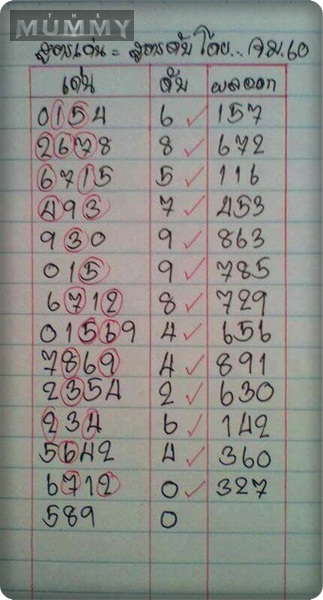 THE MUMMY
สูตรเด่น = สูตรดับ โดย.. จม.60
เด่น ดับ ผลออก
0154 6 ✓ 157
2678 8 ✓ 672
6715 5 ✓ 116
493 7 ✓ 453
930 9 ✓ 863
015 9 ✓ 785
6712 8 ✓ 729
01569 4 ✓ 656
7869 4 ✓ 891
2354 2 ✓ 630
234 6 ✓ 142
5642 4 ✓ 360
6712 0 ✓ 327
589 0